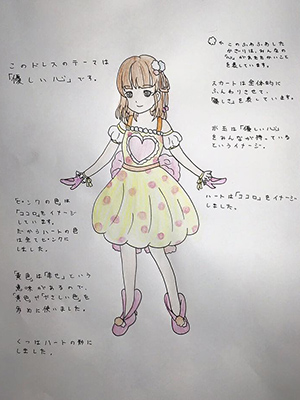 このドレスのテーマは
「優しい心」です。
ピンクの色は
「ココロ」をイメージ
しています。
だからハートの色は
全てピンクに
しました。
「黄色」は「幸せ」という
意味があるので、
黄色がやさしい色を
多めに使いました。
くつはハートの形に
しました。
← このふわふわした
かざりは、みんなの
「心」があたたかいことを
表しています。
スカートは全体的に
ふんわりさせて、
優しさを表しています。
水玉は「優しい心」
をみんなが持っている
というイメージ。
ハートは「ココロ」をイメージ
しました。